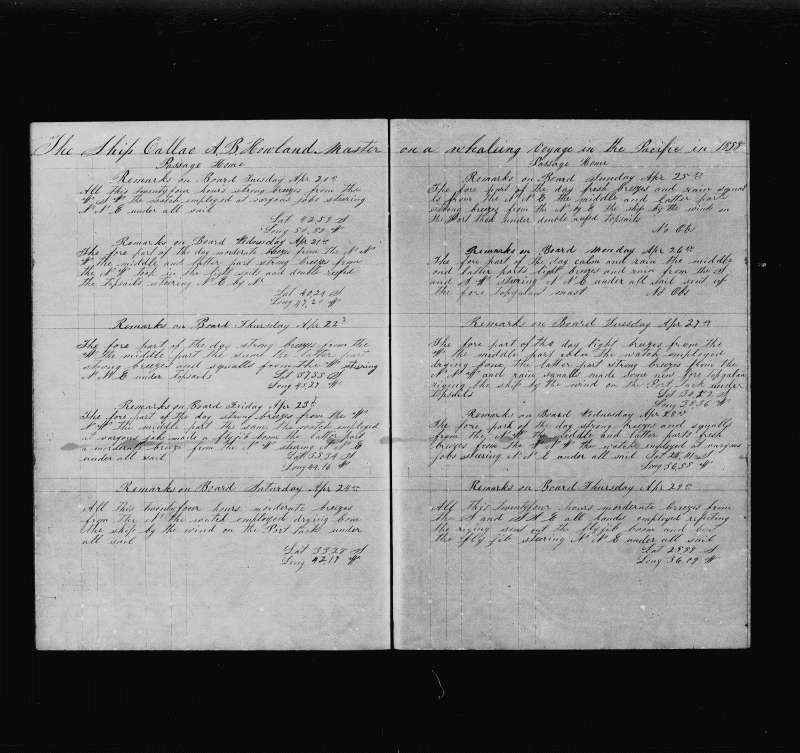 The Ship Callao A. B. Howland Master
Passage Home
Remarks on Board Tuesday Apr 20th
All this twentyfour hours strong breezes from the
W S W the watch employed at vargous jobs steering
N N E under all sail
Lat 42,59 S
Long 50,55 W
Remarks on Board Wednesday Apr 21st
The fore part of the day moderate breezes from the N N
W the middle and latter part strong breezes from
the N W took in the light sails and double reefed
the Topsails stering N E by N
Lat 40,24 S
Long 47,20 W
Remarks on Board Thursday Apr 22d
The fore part of the day strong breezes from the
W the middle part the same the latter part
strong breezes and squalls from the W stering
N N E under Topsails
Lat 37,55 S
Long 45,27 W
Remarks on Board Friday Apr 23d
The fore part of the day strong breezes from the W
N W the middle part the same the watch employed
at vargous jobs made a flyjib boom the latter part
a moderate breeze from the N W stering N N E
under all sail
Lat 35,34 S
Long 44,16 W
Remarks on Board Saturday Apr 24th
All this twentyfour hours moderate breezes
from the N the watch employed drying bone
the ship by the wind on the Port tack under
all sail
Lat 33,28 S
Long 42,17 W
on a whaleing Voyage in the Pacific in 1858
Passage Home
Remarks on Board Sunday Apr 25th
The fore part of the day fresh breezes and rain squal
ls from the N N E the middle and latter parts
strong breezes from the N by E the ship by the wind on
the Port tack under double reefed topsails
No Obs
Remarks on Board Monday Apr 26th
The fore part of the day calm and rain the middle
and latter parts light breezes and rain from the S
and S W stering N N E under all sail sent up
the fore topgalant mast No Obs
Remarks on Board Tuesday Apr 27th
The fore part of the day light breezes from the
W the middle part the watch employed
drying bone the latter part strong breezes from the
N N W and rain squalls made some new fore topgalan
riging the ship by the wind on the Port tack under
topsails Lat 30,52 S
Long 38,36 W
Remarks on Board Wednesday Apr 28th
The fore part of the day strong breezes and squalls
from the N W the middle and latter parts fresh
breezes from the W N W the watch employed at vargous
jobs stering N N E under all sail Lat 28,41 S
Long 36,58 W
Remarks on Board Thursday Apr 29th
All this twentyfour hours moderate breezes from
the S and S S E all hands employed refitting
the riging sent out the flyjib boom and bent
the fly jib stering N N E under all sail
Lat 25,59 S
Long 36,09 W